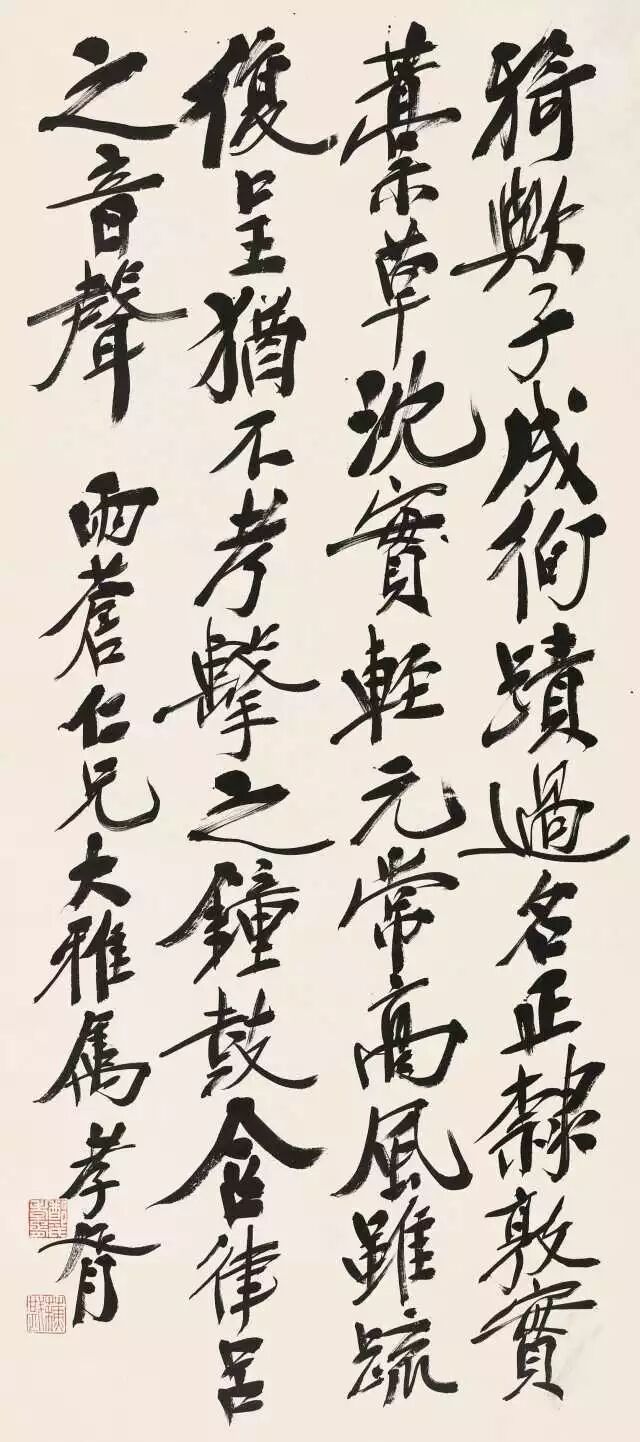 猗歟子成徇蹟過名正隸敦實
藁草沈實輕元常高風雖疏
復呈猶不考擊之鐘鼓含律呂
之音聲 雨蒼仁兄大雅屬 孝胥